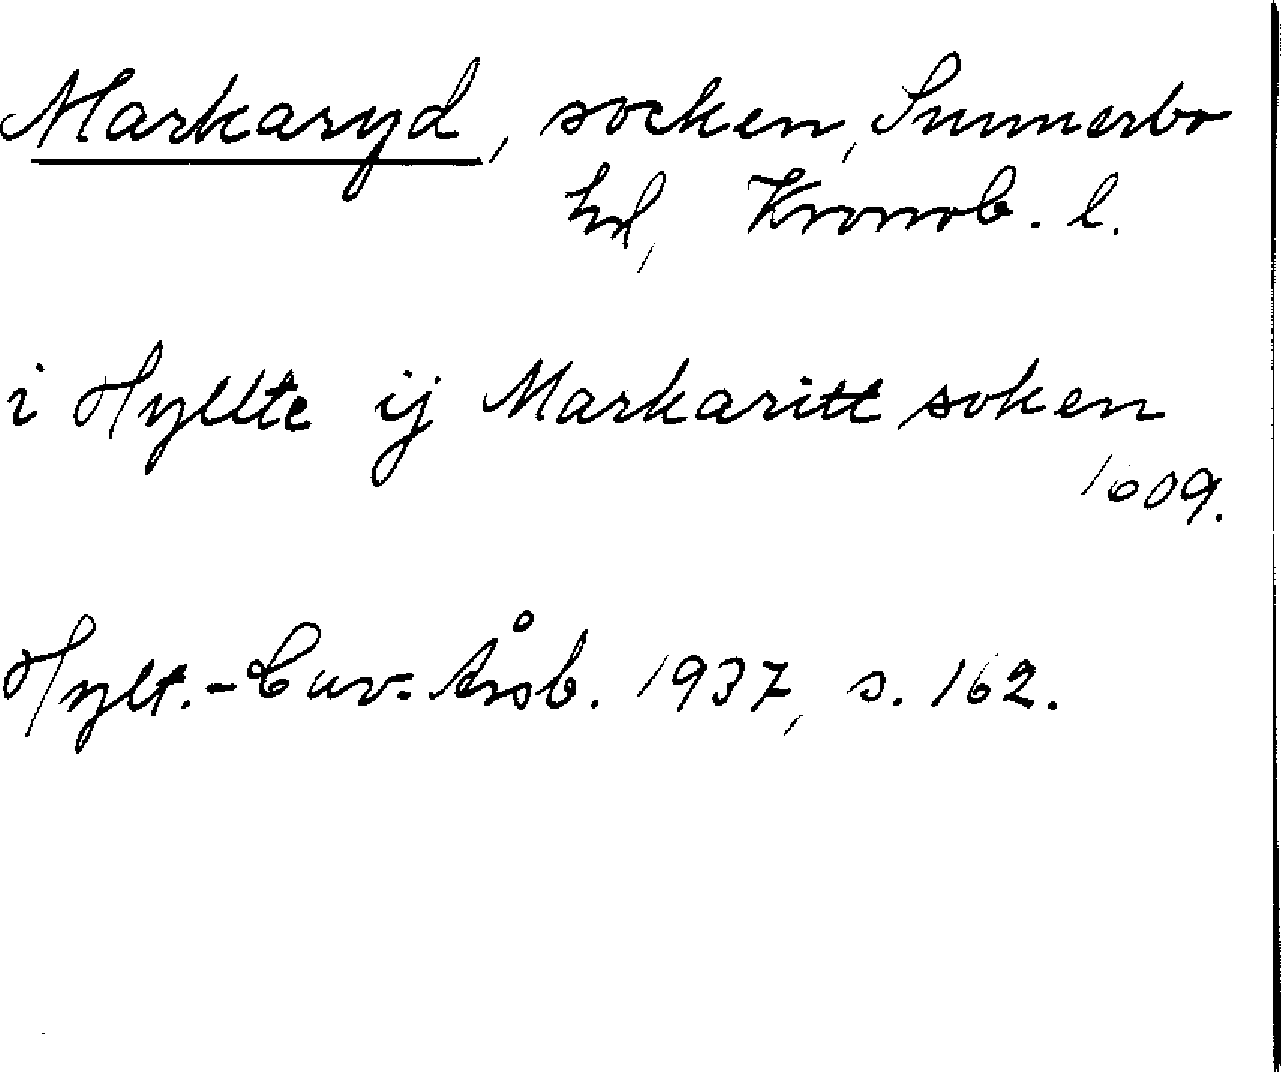 Markaryd, socken, Sunnerbo
hd, Kronob. l.
i Hyllte ij Markaritt soken
1609.
Hylt.-Cav. Årsb. 1937, s. 162.